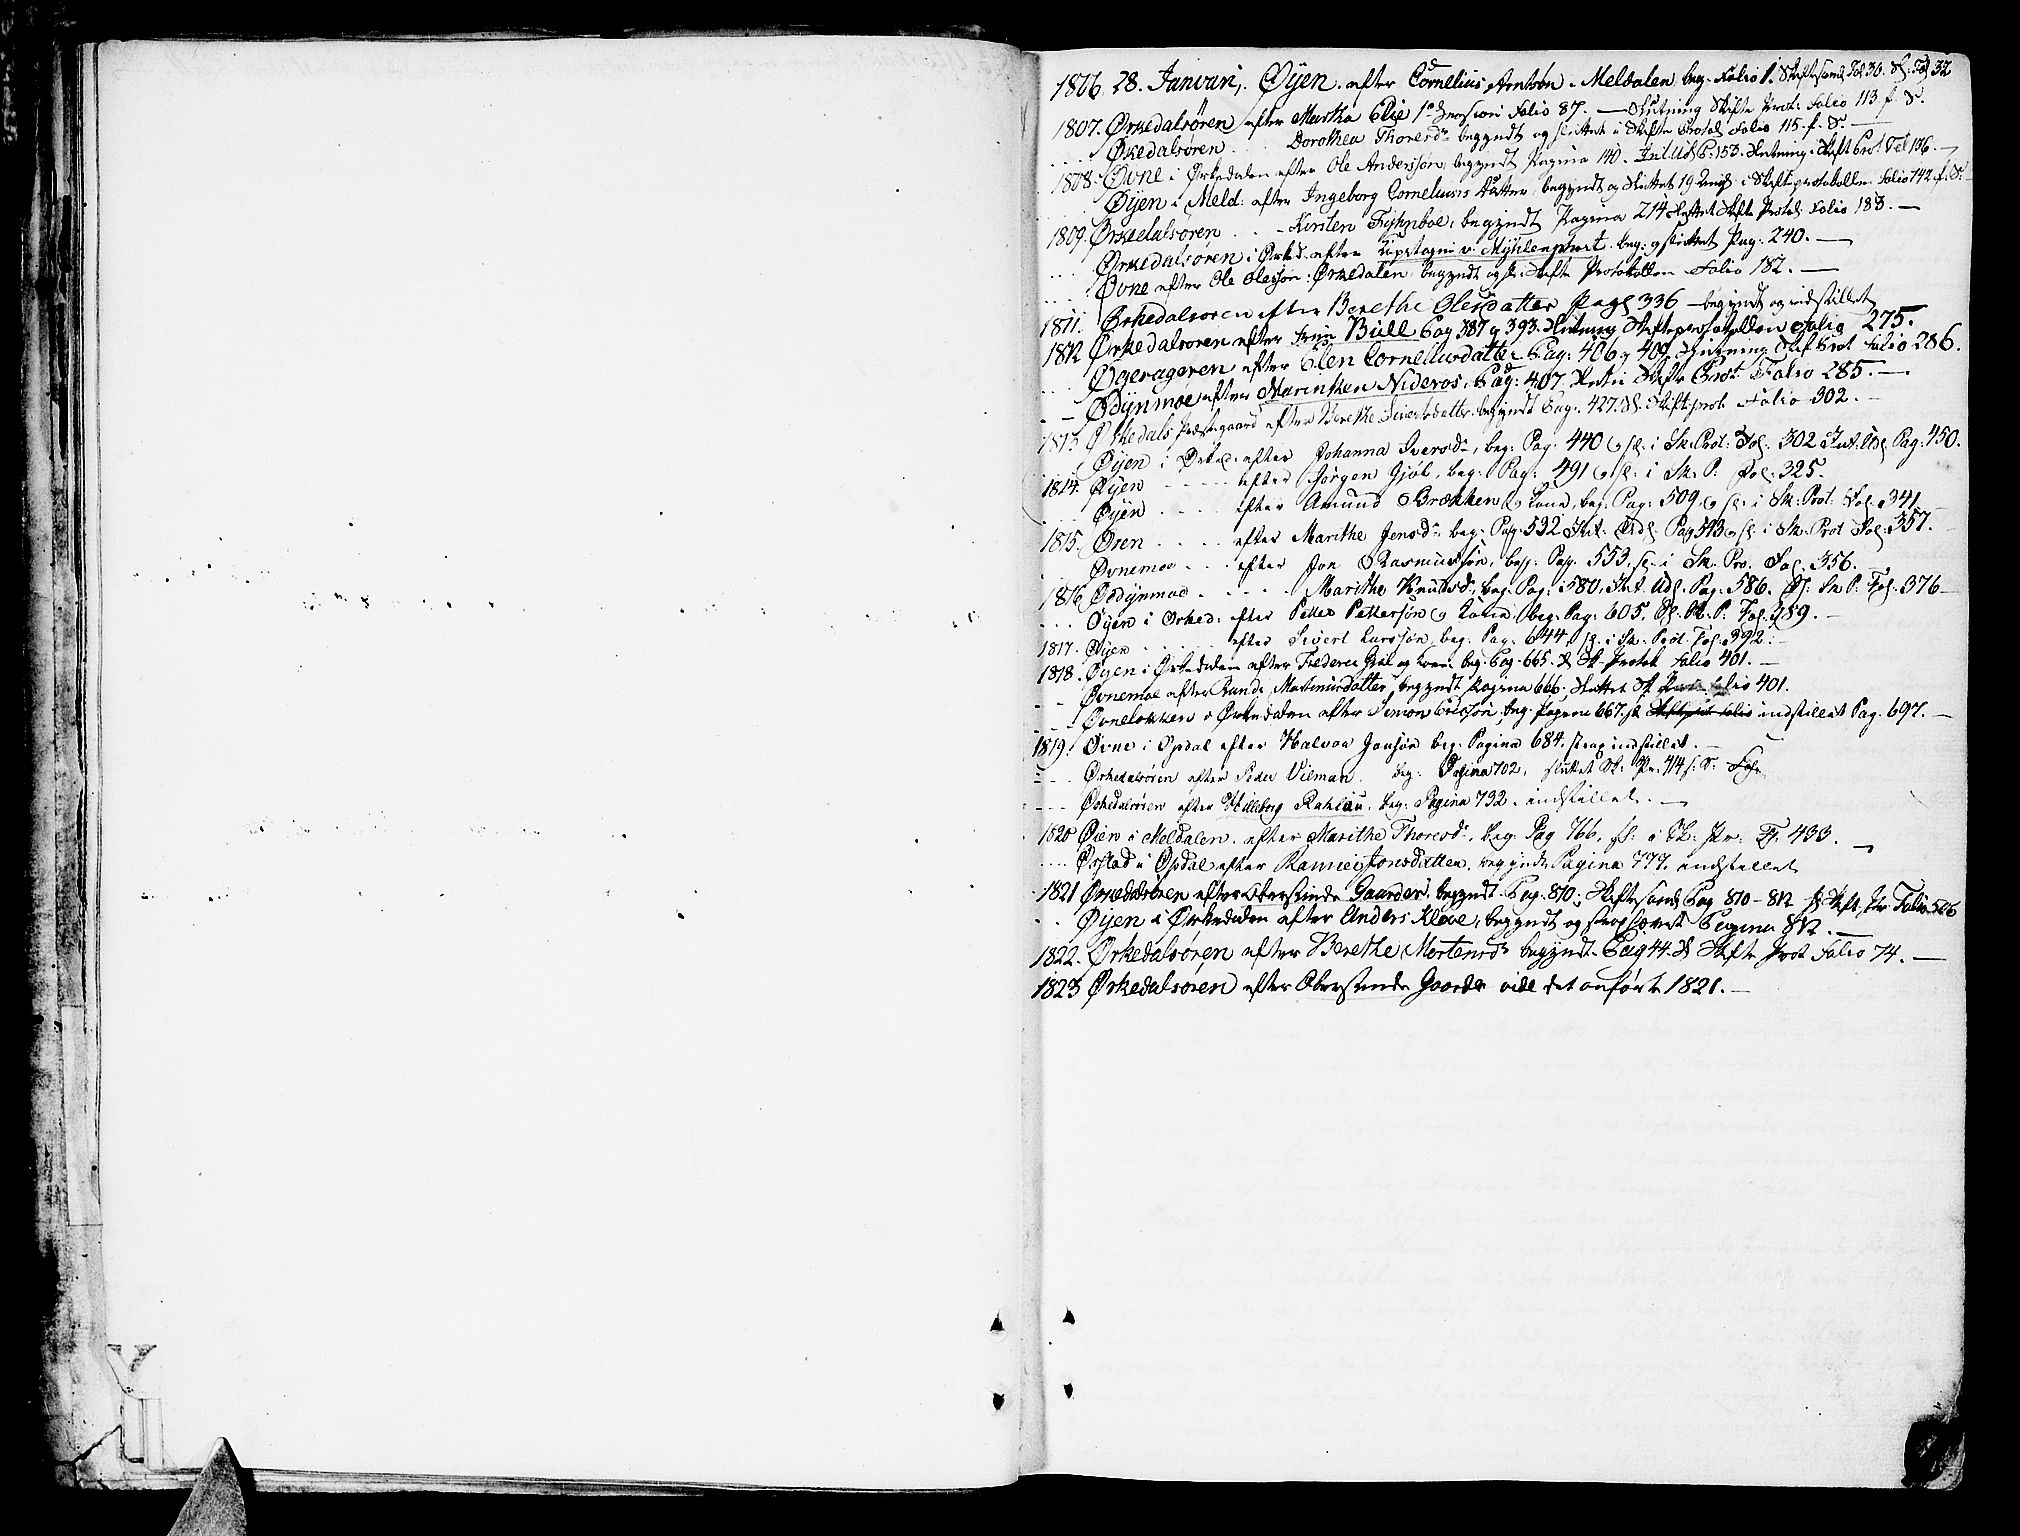 1806 28. Januari, Øyen. after Cornelius Arntsøn. Meldalen beg. Folio 1. Skiftesaml Fol 30. Sl: Fol 32
1807. Ørkedalsøren after Martha Elie Folio 87. — Slutning Skifte Prot: Folio 113 f. S.
.... Økedalsøren . . . Dorothea Thoresdr begyndt og sluttet i Skifte Protol Folio 115. f. S. —
1808. Øvne i Ørkedalen efter Ole Anderssøn, begyndt Pagina 140. Int Uds P: 153. Slutning i Skift Prot Fol 136. —
Øyen i Meld: after Ingeborg Cornelius Datter, begyndt og sluttet 19 Junij i Skifteprotokollen Folio 142. f. S. —
1809. Ørkedalsøren . . . Kirsten Fyhnboe, begyndt Pagina 214 sluttet Skifte Protol: Folio 183. —
Ørkedalsøren i Ørked. after v: Mÿhlenphort. beg: og sluttet Pag: 240. —
.... Øvne after Ole Olessøn: Ørkedalen begyndt og sl: Skifte Protokollen Folio 182. —
1811. Ørkedalsøren efter Berethe Olesdatter Pag 336 — begyndt og indstillet
1812 Ørkedalsøren after Frue Bull Pag 387 g 393. Slutning Skifteprotokollen Folio 275.
. . Øyerageren after Elen Corneliusdatter Pag: 406 g 409 Slutning Skif Prot Folio 286.
. — Ødynmoe after Marinken Nideros, Pag: 407. Skifte Prot: Folio 285. —
1813 Ørkedals Præstegaard efter Berethe Siversdatter begyndt Pag: 427. Sl. Skifteprot Folio 302. —
Øyen i Ørked. efter Johanna Iversdr, beg: Pag: 440 og sl: i Sk: Prot: Fol: 302 Int: Uds Pag: 450.
1814. Øyen - - - - efter Jørgen Gjøl, beg: Pag: 491 og sl: i Sk. P: Fol: 325.
. . . Øyen . . . . efter Amund Brækken og Kone, beg: Pag: 509 og sl: i Sk: Prot: Fol: 341.
1815. Øren . . . . efter Marithe Jensdr, beg: Pag: 532 Int. Uds. Pag 543 og sl: i Sk: Prot Fol: 357. —
. . . Øvnemoe . . . efter Jon Rasmussøn, beg: Pag. 553, sl: i Sk. Pro. Fol. 356.
1816 Ødynmoe . . . . . Marithe Knudsdr, beg: Pag: 580, Int. Uds. Pag: 586. Sl: Sk P: Fol: 376 —
. . . Øyen i Ørked: efter Petter Pettersøn og Kone, beg: Pag: 605. Sl. Sk. P: Fol: 389. —
1817. Øyen . . . . . efter Sivert Larssøn, beg: Pag: 644, sl: i Sk: Prot: Fol: 392. —
1818. Øyen i Ørkedalen after Frederic Gjøl og kone beg: Pag. 665. Sl Sk. Protok Folio 401. —
— — Øvnemoe after Randi Martinusdatter, begyndt Pagina 666, sluttet Sk Folio 401.
— — Øvneløkken i Ørkedalen after Simon Ericsøn, beg: Pagina 667. indstillet Pag. 697. —
1819. Øvne i Opdal efter Halvor Jonsøn beg: Pagina 684. strax indstillet. —
- - - Ørkedalsøren efter Peder Vilman. beg: Pagina 702, sluttet Sk: Pr: 414 f: S:
- - - Ørkedalsøren efter Hilleborg Rahlau, beg: Pagina 732. indstillet. —
1820 Øien i Meldalen. efter Marithe Thoresdr, beg: Pag 766, sl: i Sk: Pr: F: 433. —
.... Ørstad i Opdal efter Ranneij Jonsdatter, begyndt Pagina 777. indstillet
1821 Ørkedalsøren efter Oberstinde Gaarder begyndt Pag. 810; Skiftesaml Pag 810 – 812 Sl Skift: Pr Folio 506
. . Øijen i Ørkedalen after Anders Kleve, begyndt og strax Pagina 812. —
1822. Ørkedalsøren efter Berethe Mortensdr begyndt Pag 44. Sl Skifte Prot Folio 74. —
1823 Ørkedalsøren efter Oberstinde Gaarder vide det anførte 1821. —